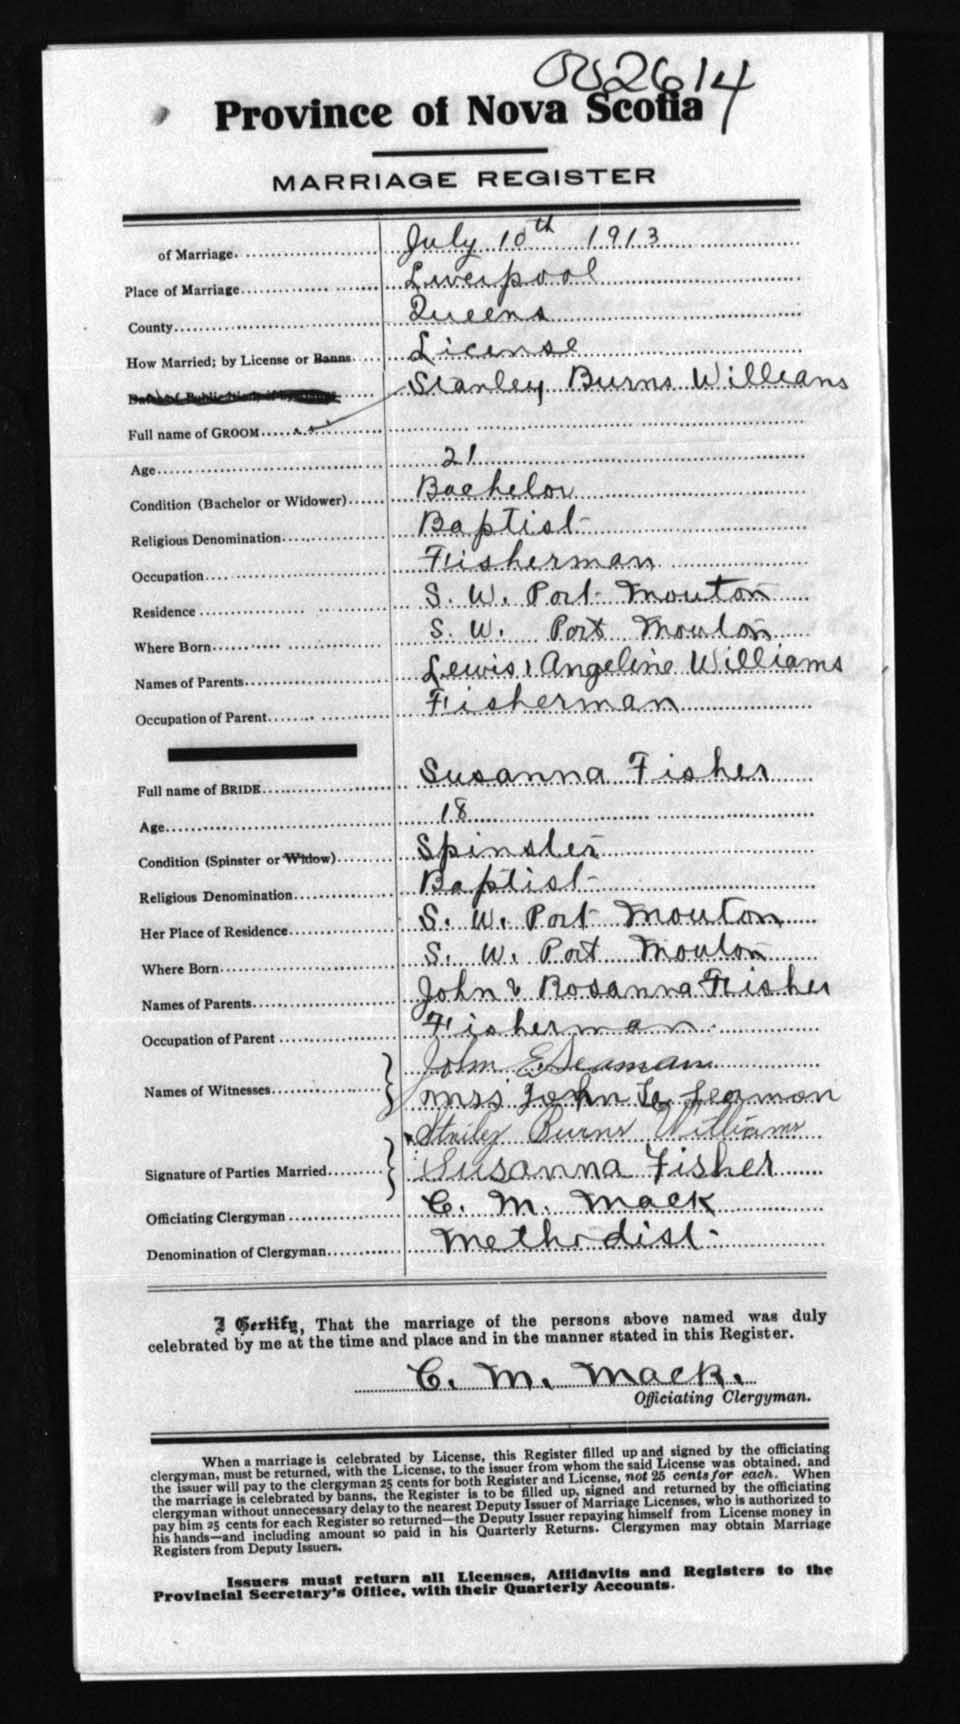 002614
Province of Nova Scotia
MARRIAGE REGISTER
of Marriage. July 10th 1913
Place of Marriage Liverpool
County Queens
How Married; by License or Banns License
Stanley Burns Willians
Full name of GROOM
Age 21
Condition (Bachelor or Widower) Bachelor
Religious Denomination Baptist
Occupation Fisherman
Residence S. W. Port Mouton
Where Born S. W. Port Mouton
Names of Parents Lewis & Angeline Williams
Occupation of Parent Fisherman
Full name of BRIDE Susanna Fisher
Age 18
Condition (Spinster or Widow) Spinster
Religious Denomination Baptist
Her Place of Residence S. W. Port Mouton
Where Born S. W. Port Mouton
Names of Parents John & Rosanna Fisher
Occupation of Parent Fisherman
John E Seaman
Names of Witnesses Mrs John E Seamon
Burns Williams
Signature of Parties Married Susanna Fisher
Officiating Clergyman C. M. Mack
Denomination of Clergyman Methodist
I Certify, That the marriage of the persons above named was duly
celebrated by me at the time and place and in the manner stated in this Register.
C. M. Mack.
Officiating Clergyman.
When a marriage is celebrated by License, this Register filled up and signed by the officiating
clergyman, must be returned, with the License, to the issuer from whom the said License was obtained, and
the issuer will pay to the clergyman 25 cents for both Register and License, not 25 cents for each. When
the marriage is celebrated by banns, the Register is to be filled up, signed and returned by the officiating
clergyman without unnecessary delay to the nearest Deputy Issuer of Marriage Licenses, who is authorized to
pay him 25 cents for each Register so returned—the Deputy Issuer repaying himself from License money in
his hands—and including amount so paid in his Quarterly Returns. Clergymen may obtain Marriage
Registers from Deputy Issuers.
Issuers must return all Licenses, Affidavits and Registers to the
Provincial Secretary's Office, with their Quarterly Accounts.